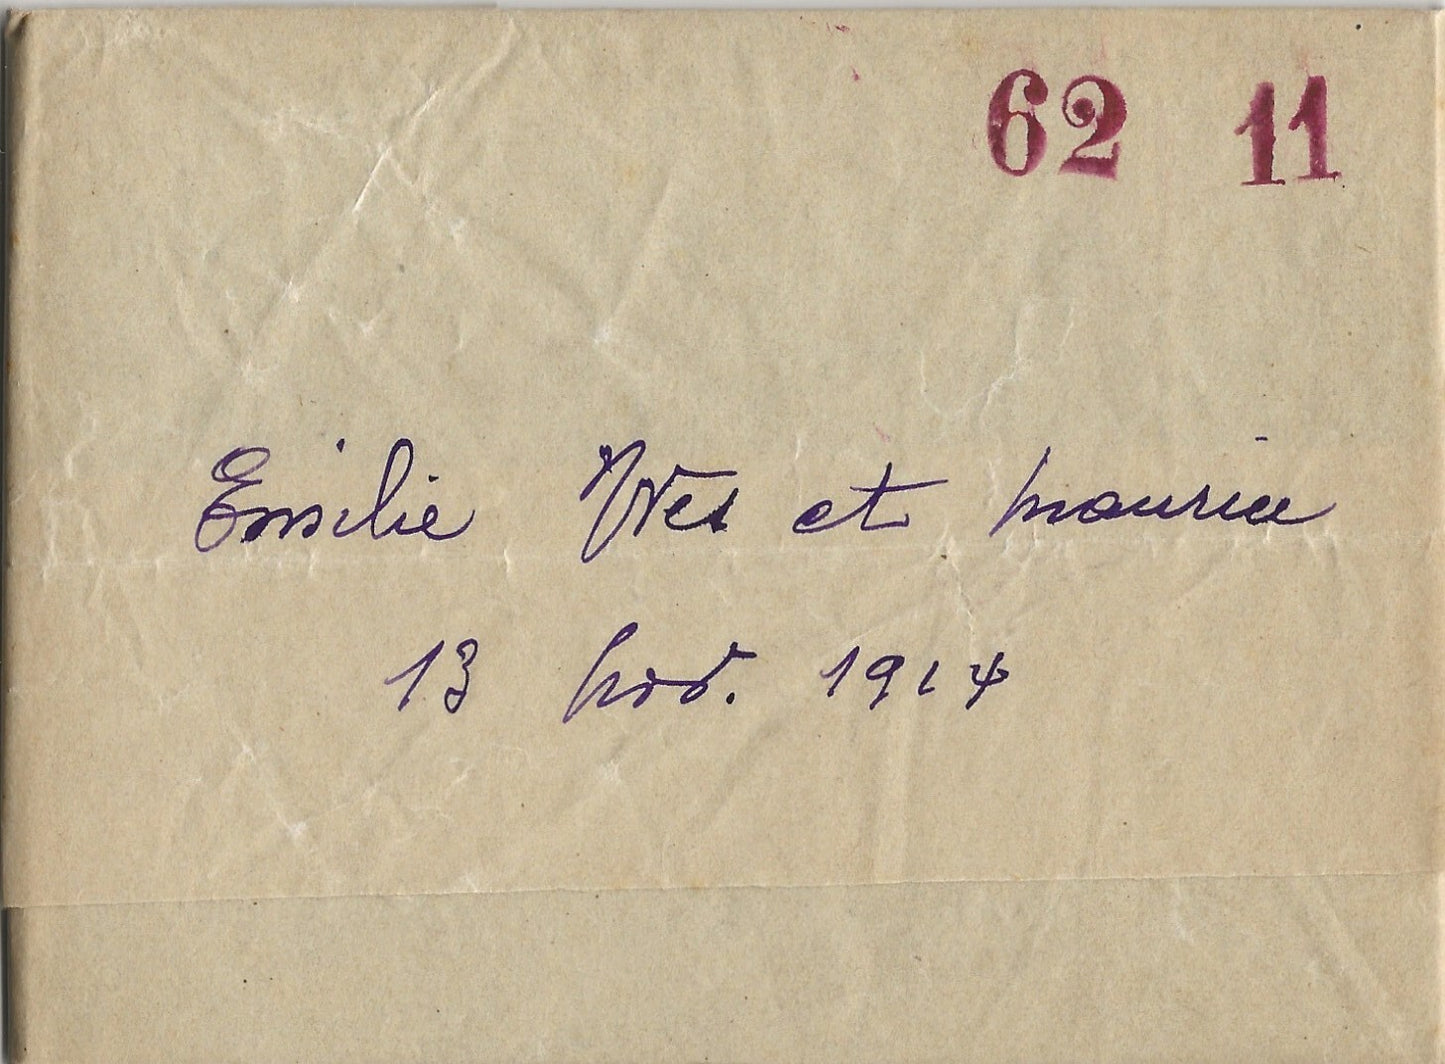 62 11
Emilie Yves et Maurice
13 Nov. 1914